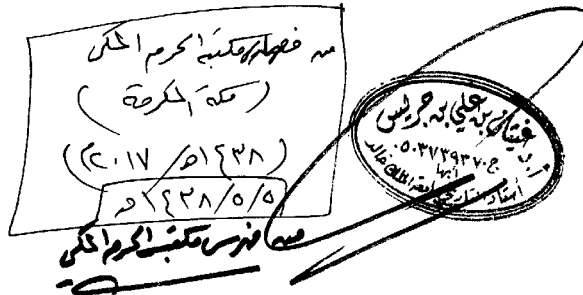 من فهارس مكتبة الحرم المكي
(مكة المكرمة)
(١٤٣٨هـ / ٢٠١٧م)
١٤٣٨/٥/٥هـ
من فهرس مكتبة الحرم المكي
أ.د. غيثان بن علي بن جريس
ج ٠٥٠٣٧٣٩٣٧٠
أبها
أستاذ التاريخ بجامعة الملك خالد